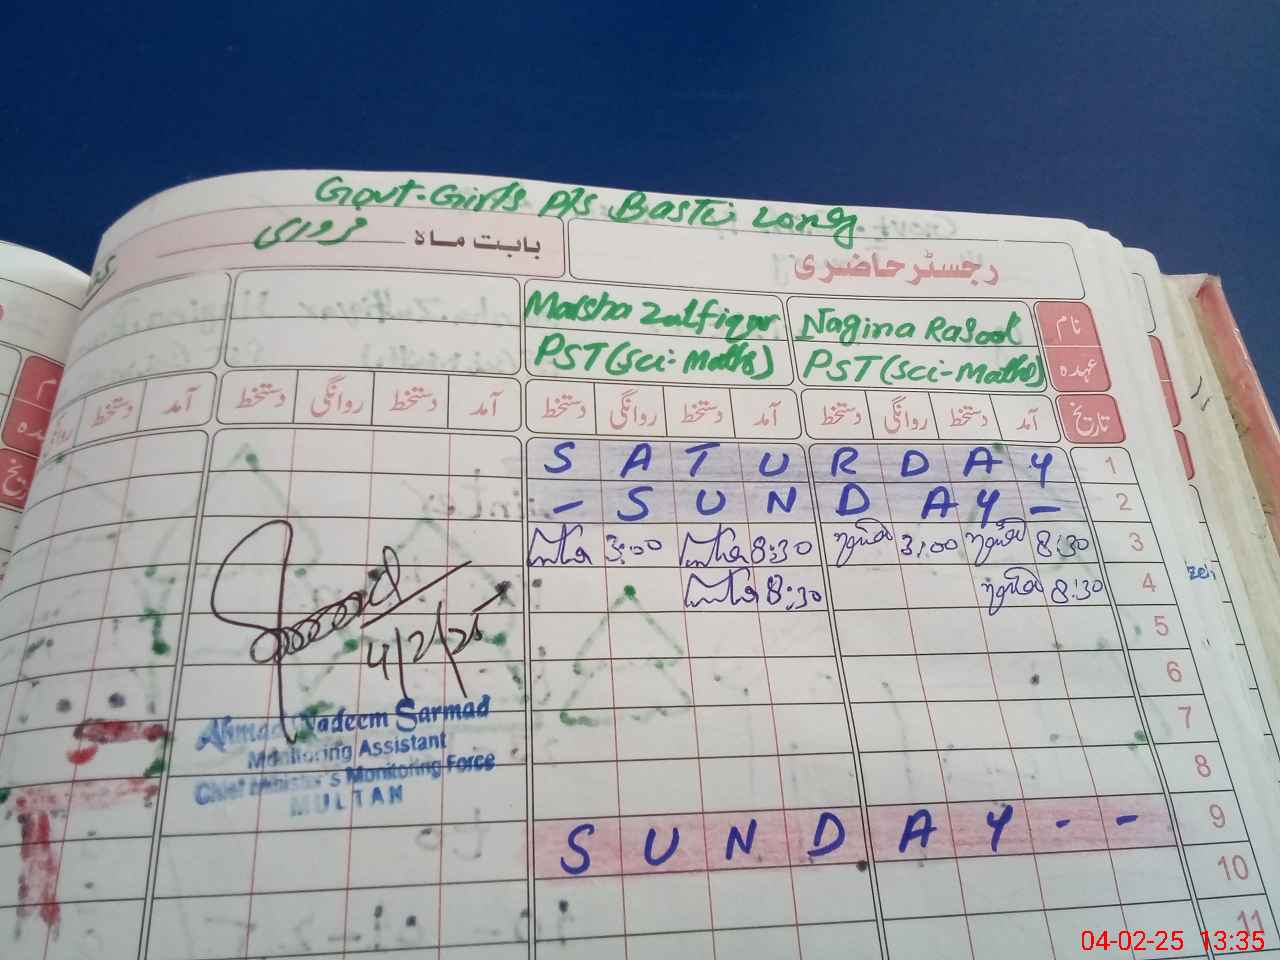 Govt. Girls P/S Basti Long
رجسٹر حاضری
بابت ماہ فروری
نام Nagina Rasool Maisha Zulfiqar
عہدہ PST (Sci-Maths) PST (Sci-Maths)
تاریخ آمد دستخط روانگی دستخط آمد دستخط روانگی دستخط آمد دستخط روانگی دستخط آمد دستخط
S A T U R D A Y 1
- S U N D A Y - 2
3:00 8:30 3:00 8:30 3
8:30 8:30 4
5
6
7
8
S U N D A Y - - 9
10
11
4/2/25
Ahmad Nadeem Sarmad
Monitoring Assistant
Chief Minister's Monitoring Force
MULTAN
04-02-25 13:35